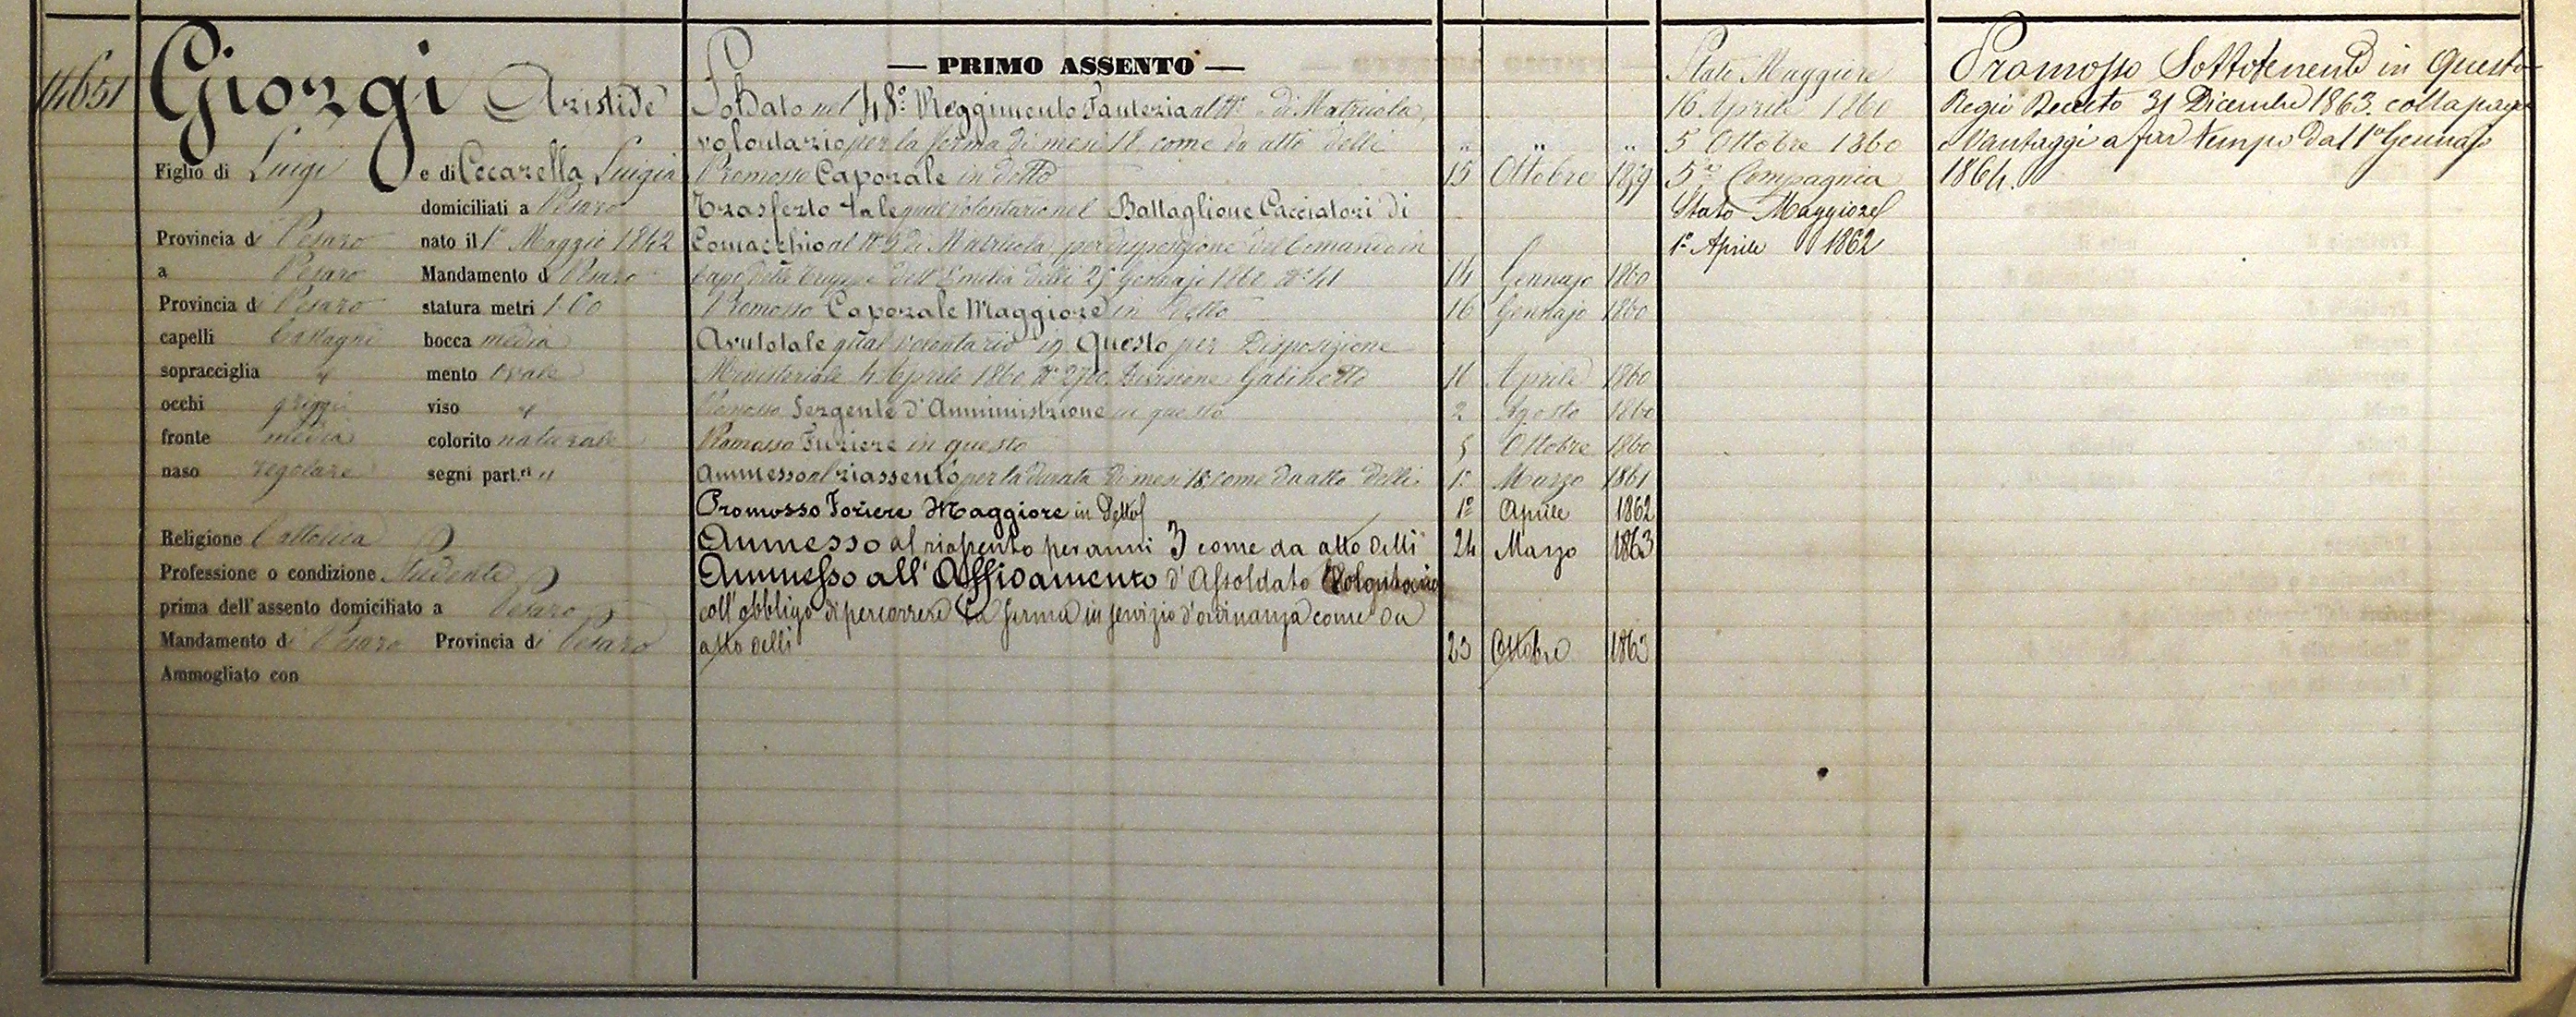 14651
Giorgi Aristide
Figlio di Luigi e di Cecarella Luigia
domiciliati a Pesaro
Provincia di Pesaro nato il 1° Maggio 1842
a Pesaro Mandamento di Pesaro
Provincia di Pesaro statura metri 1.60
capelli Castagni bocca media
sopracciglia " mento ovale
occhi griggi viso "
fronte media colorito naturale
naso regolare segni part.ri "
Religione Cattolica
Professione o condizione Studente
prima dell'assento domiciliato a Pesaro
Mandamento di Pesaro Provincia di Pesaro
Ammogliato con
— PRIMO ASSENTO —
Soldato nel 48° Reggimento Fanteria al N° di Matricola
volontario per la ferma di mesi 18 come da atto delli " " "
Promosso Caporale in detto 15 Ottobre 1859
Trasferto tale qual volontario nel Battaglione Cacciatori di
Comacchio al N° 5 di Matricola per disposizione del Comando in
Capo delle truppe dell'Emilia delli Gennajo 1860 N° 41 14 Gennajo 1860
Promosso Caporale Maggiore in detto 16 Gennajo 1860
Avuto tale qual volontario in Questo per Disposizione
Ministeriale 4 Aprile 1860 N° Divisione Gabinetto 16 Aprile 1860
Promosso Sergente d'Amministrzione in questo 2 Agosto 1860
Promosso Furiere in questo 5 Ottobre 1860
Ammesso al riassento per la durata di mesi 18 come da atto delli 1° Marzo 1861
Promosso Foriere Maggiore in detto 1° Aprile 1862
Ammesso al riassento per anni 3 come da atto delli 24 Marzo 1863
Ammesso all'Affidamento d'Assoldato Volontario
coll'obbligo di percorrere la ferma in servizio d'ordinanza come da
atto delli 23 Ottobre 1863
Stato Maggiore
16 Aprile 1860
5 Ottobre 1860
5ª Compagnia
Stato Maggiore
1° Aprile 1862
Promosso Sottotenente in Questo
Regio Decreto 31 Dicembre 1863 colla paga
e Vantaggi a far tempo dal 1° Gennajo
1864.